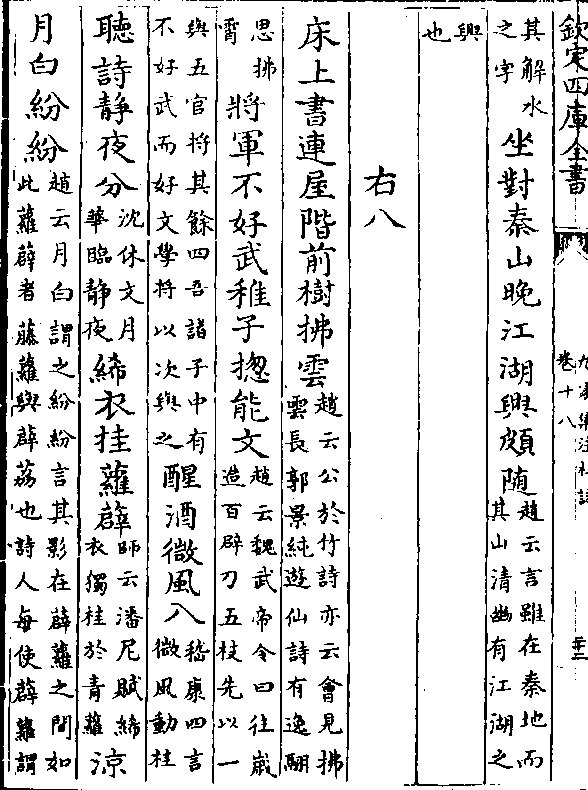 欽定四庫全書
九家集注杜詩
卷十八
其解水
之字
坐對秦山晚江湖興頗随
趙云言雖在秦地而
其山清幽有江湖之
興
也
右八
床上書連屋階前樹拂雲
趙云公於竹詩亦云會見拂
雲長郭景純遊仙詩有逸翮
思拂
霄
將軍不好武稚子揔能文
趙云魏武帝令曰往歳
造百辟刀五枝先以一
與五官将其餘四吾諸子中有
不好武而好文學将以次與之
醒酒微風入
嵇康四言
微風動桂
聽詩静夜分
沈休文月
華臨静夜
絺衣挂蘿薜
師云潘尼賦絺
衣獨挂於青蘿
涼
月白紛紛
趙云月白謂之紛紛言其影在薜蘿之間如
此蘿薜者藤蘿與薜荔也詩人每使薜蘿謂